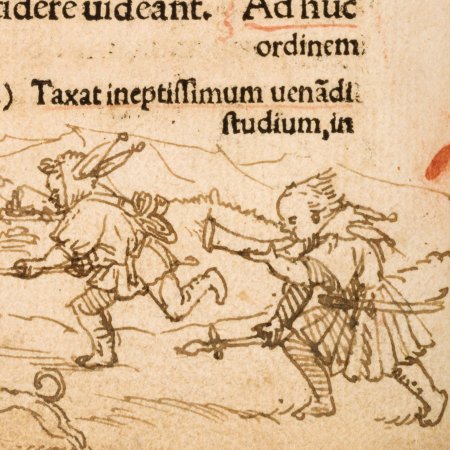 cidere uideant. Ad huc
ordinem
.) Taxat ineptissimum uenãdi
studium, in